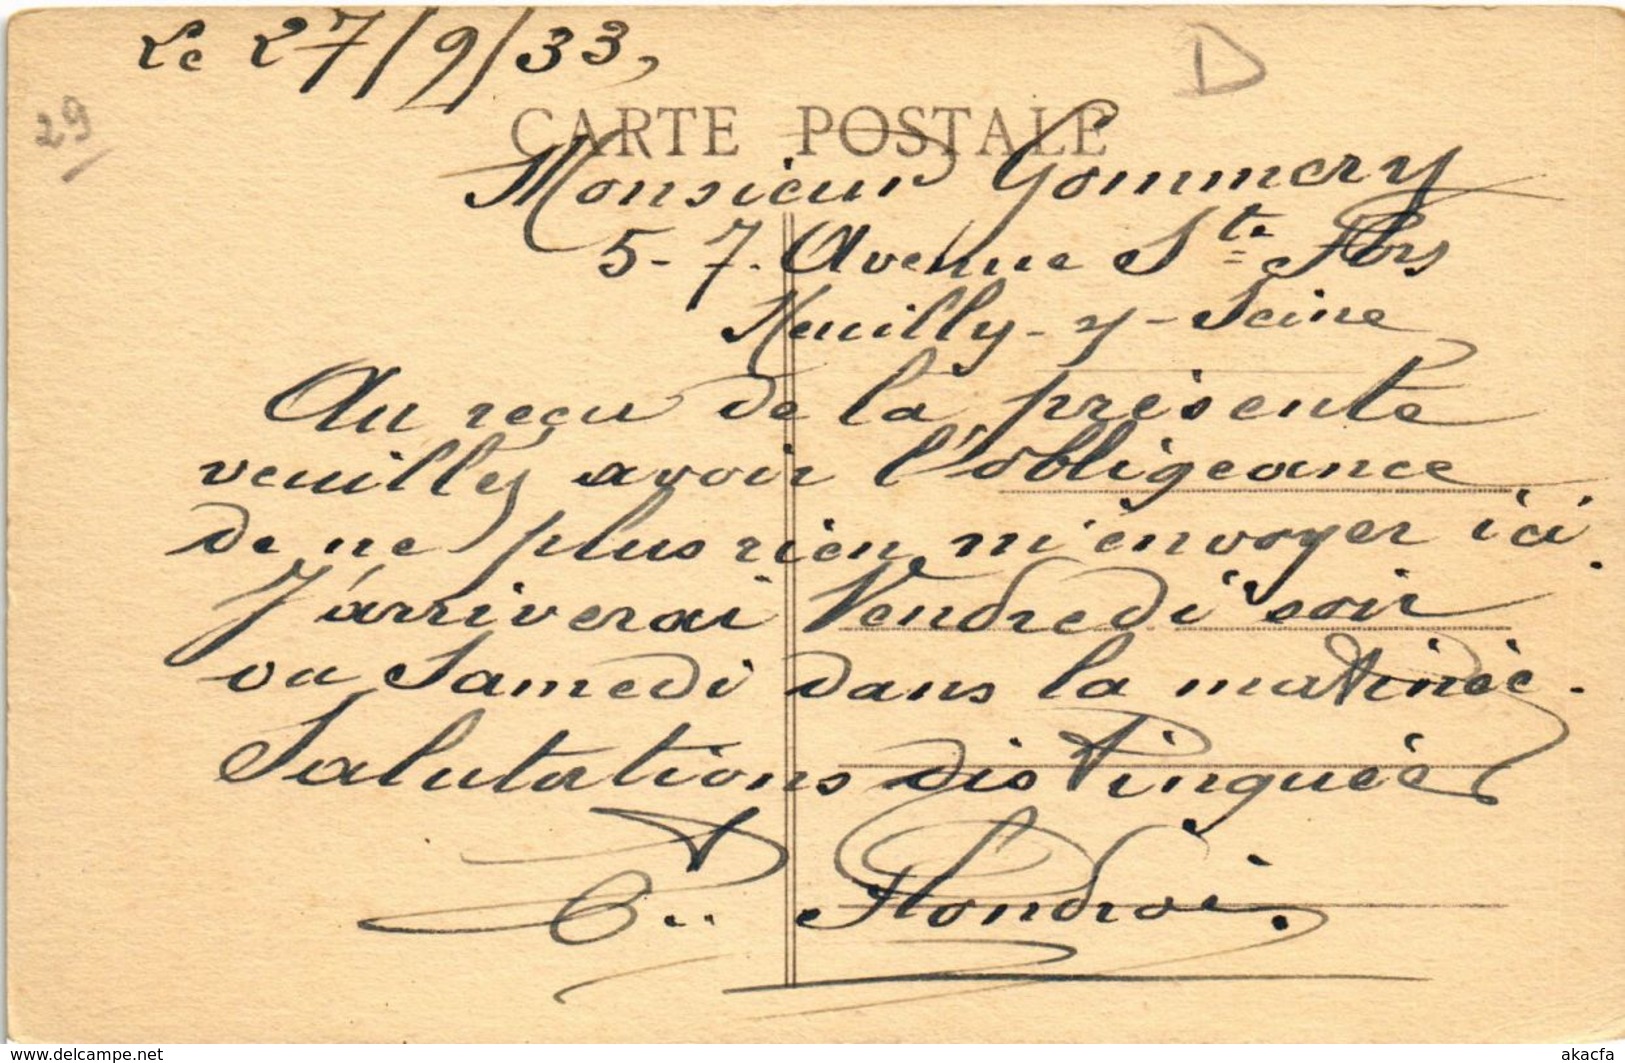 Le 27/9/33,
D
29
CARTE POSTALE
Monsieur Gommery
5-7. Avenue Ste
Neuilly-s/-Seine
Au reçu de la présente
veuillez avoir l'obligeance
de ne plus rien m'envoyer ici.
J'arriverai Vendredi soir
ou Samedi dans la matinée.
Salutations distinguées
Flondroi.
www.delcampe.net
akacfa